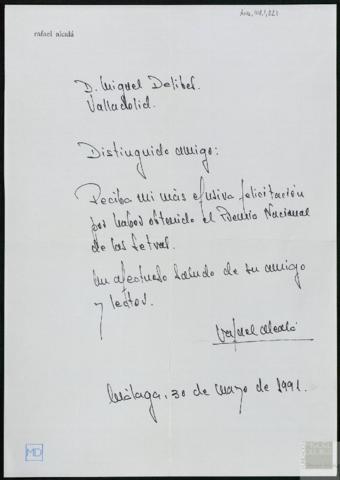 rafael alcalá
D. Miguel Delibes.
Valladolid.
Distinguido amigo:
Reciba mi más efusiva felicitación
por haber obtenido el Premio Nacional
de las Letras.
Un afectuoso saludo de su amigo
y lector.
Rafael Alcalá
Málaga, 30 de mayo de 1991.
MD